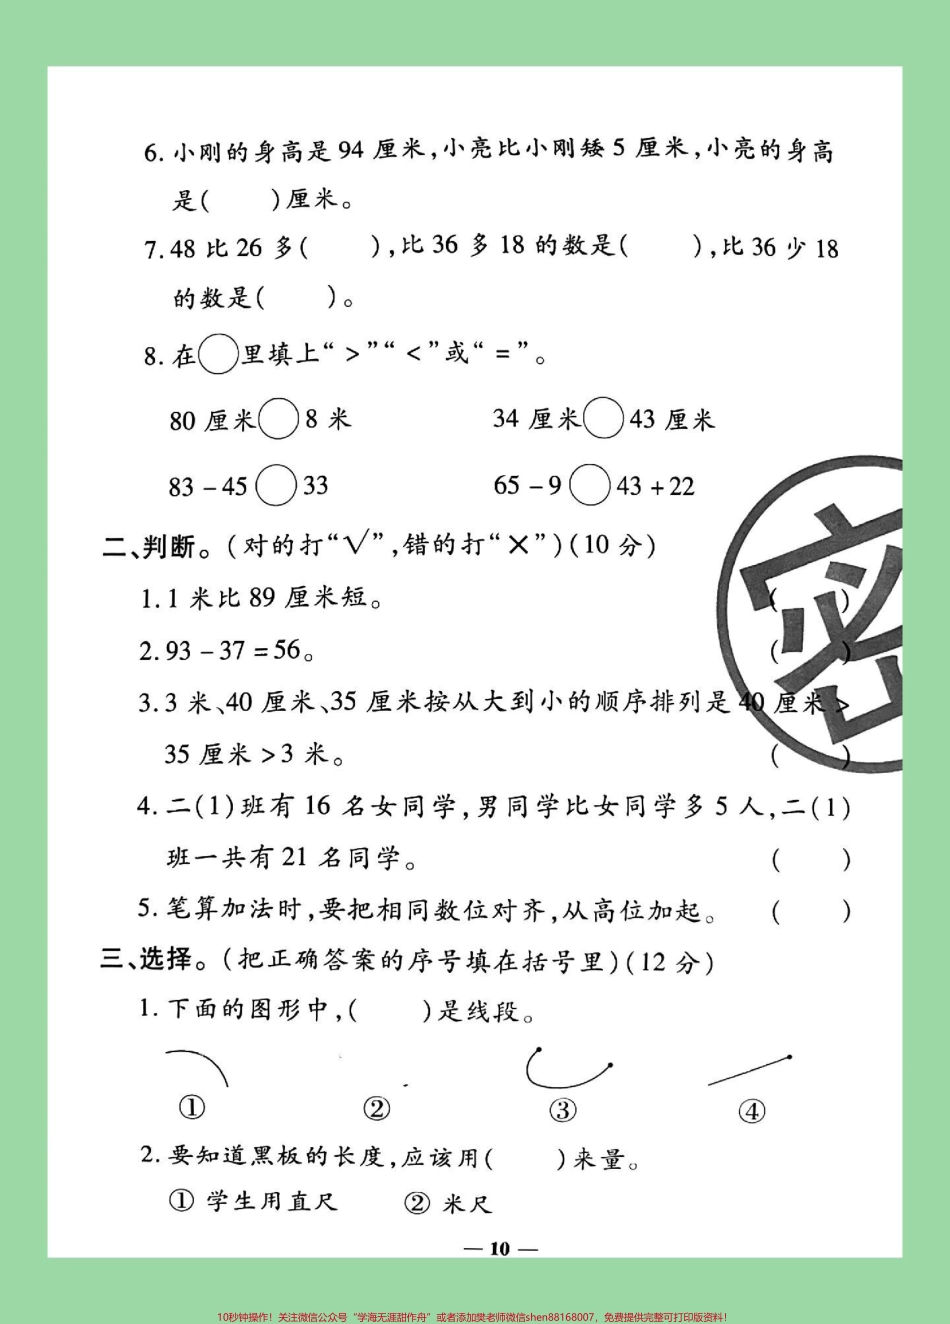 6. 小刚的身高是 94 厘米,小亮比小刚矮 5 厘米,小亮的身高
是(      )厘米。
7. 48 比 26 多(      ),比 36 多 18 的数是(      ),比 36 少 18
的数是(      )。
8. 在○里填上“ > ”“ < ”或“ = ”。
80 厘米○8 米    34 厘米○43 厘米
83 - 45○33    65 - 9○43 + 22
二、判断。(对的打“√”,错的打“×”)(10 分)
1. 1 米比 89 厘米短。 (      )
2. 93 - 37 = 56。 (      )
3. 3 米、40 厘米、35 厘米按从大到小的顺序排列是 40 厘米 >
35 厘米 > 3 米。 (      )
密
4. 二(1)班有 16 名女同学,男同学比女同学多 5 人,二(1)
班一共有 21 名同学。 (      )
5. 笔算加法时,要把相同数位对齐,从高位加起。 (      )
三、选择。(把正确答案的序号填在括号里)(12 分)
1. 下面的图形中,(      )是线段。
① ② ③ ④
2. 要知道黑板的长度,应该用(      )来量。
① 学生用直尺    ② 米尺
— 10 —
10秒钟操作！关注微信公众号“学海无涯甜作舟”或者添加樊老师微信shen88168007，免费提供完整可打印版资料！